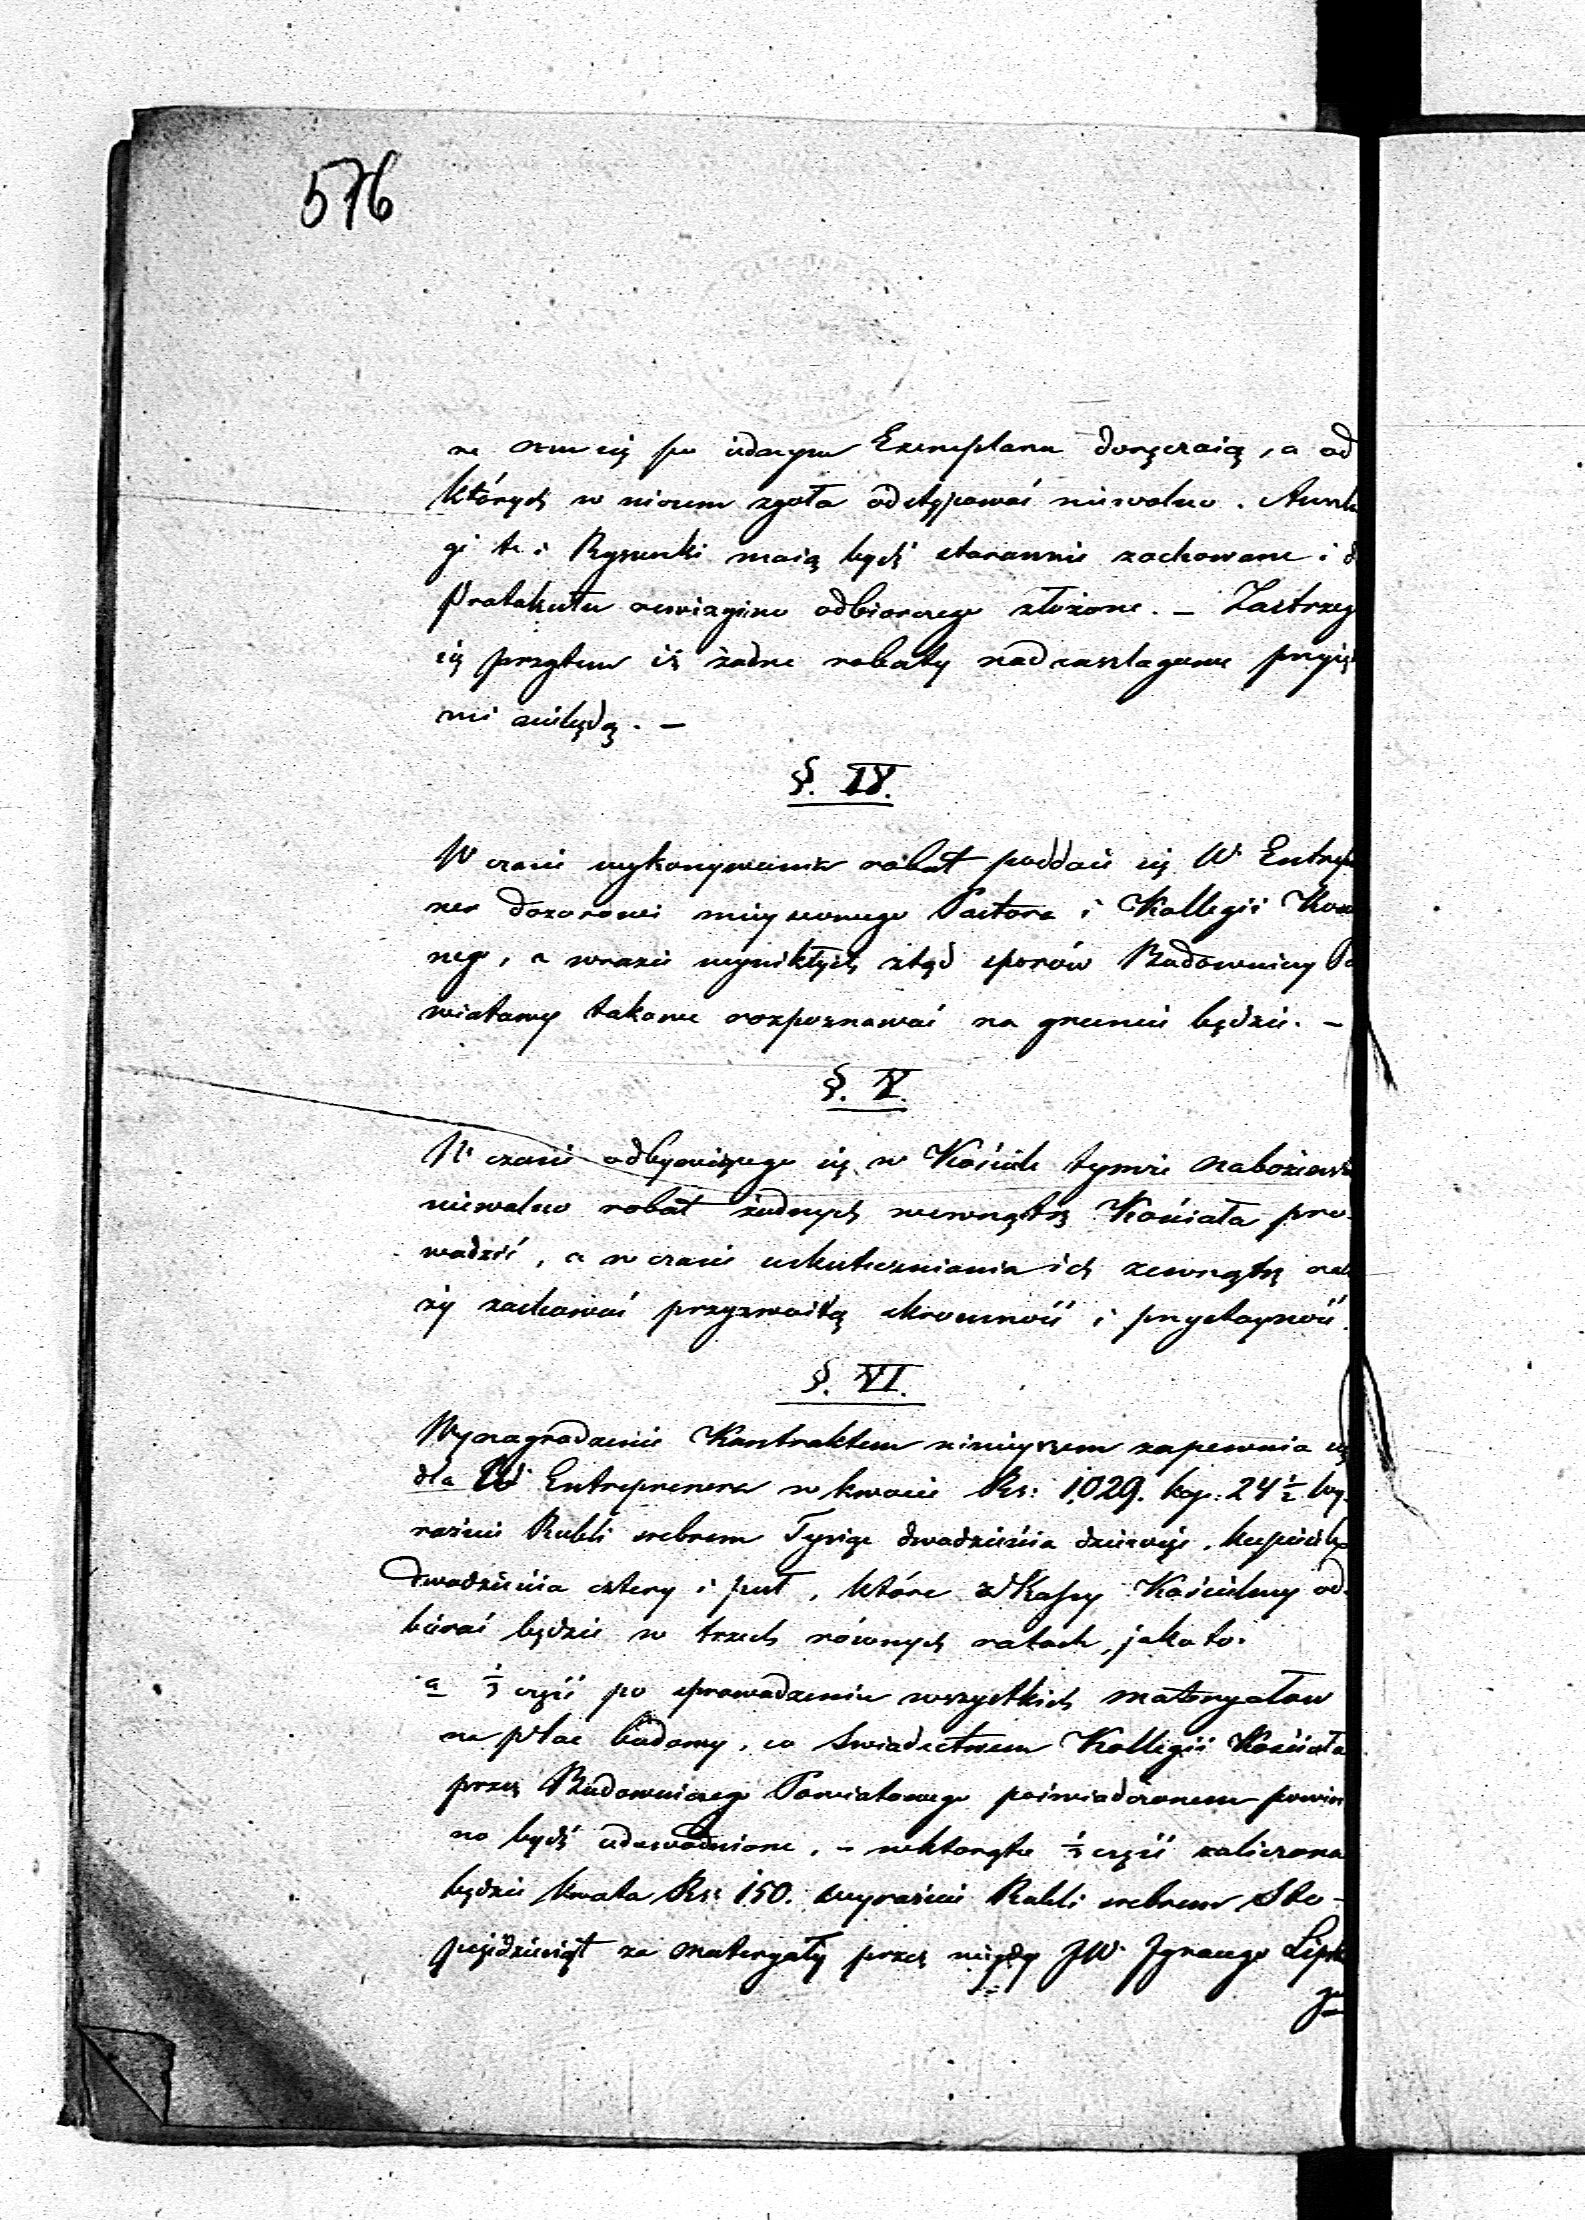 576
ne mu się po iednym Exemplarzu doręczaią, a od
których w niczem zgoła odstępować niewolno. Ansch
gi te i Rysunki maią bydź starannie zachowane i d
Protokułu rewizyino odbiorczego złożone. – Zastrzeg
się przytem iż żadne roboty nadanszlagowe przyię
mi niebędą. –
§. IV.
W czasie wykonywania robót poddaie się W. Entrepre
ner dozorowi mieyscowego Pastora i Kollegii Kośc
nego, a w razie wynikłych ztąd sporów Budowniczy Po
wiatowy takowe rozpoznawać na gruncie będzie. –
§. V.
W czasie odbywaiącego się w Kościele tymże nabożeństw
niewolno robót żadnych wewnątrz Kościoła pro-
wadzić, a w czasie uskuteczniania ich zewnątrz nale
ży zachować przyzwoitą skromność i przystoyność.
§. VI.
Wynagrodzenie Kontraktem ninieyszem zapewnia się
dla W. Entreprenera w kwocie Rs: 1029. kop: 24 ½ wy-
raźnie Rubli srebrem Tysiąc dwadzieścia dziewięć, kopieiek
dwadzieścia cztery i puł, które z Kassy Kościelney od-
bierać będzie w trzech równych ratach, jako to.
a ⅓ część po sprowadzeniu wszystkich materyałow
na plac budowy, co Swiadectwem Kollegii Kościoła
przez Budowniczego Powiatowego poświadczonem powin
no bydź udowodnione, – w którąto ⅓ część zaliczona
będzie kwota Rs: 150. wyraźnie Rubli srebrem Sto-
pięćdziesiąt za materyały przez niegdy JW. Ignacego Lipsk